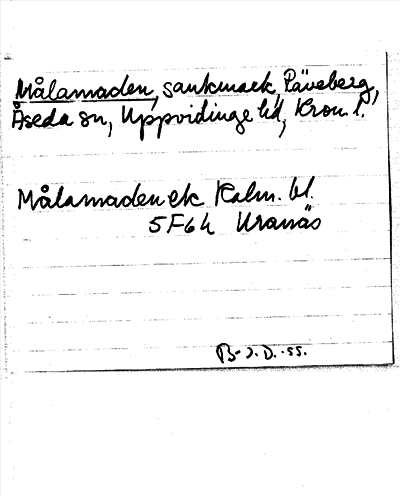 Målamaden, sankmark, Päveberg,
Åseda sn, Uppvidinge hd, Kron. l.
Målamaden ek Kalm. bl.
5F6h Uranäs
B-J.D.-55.